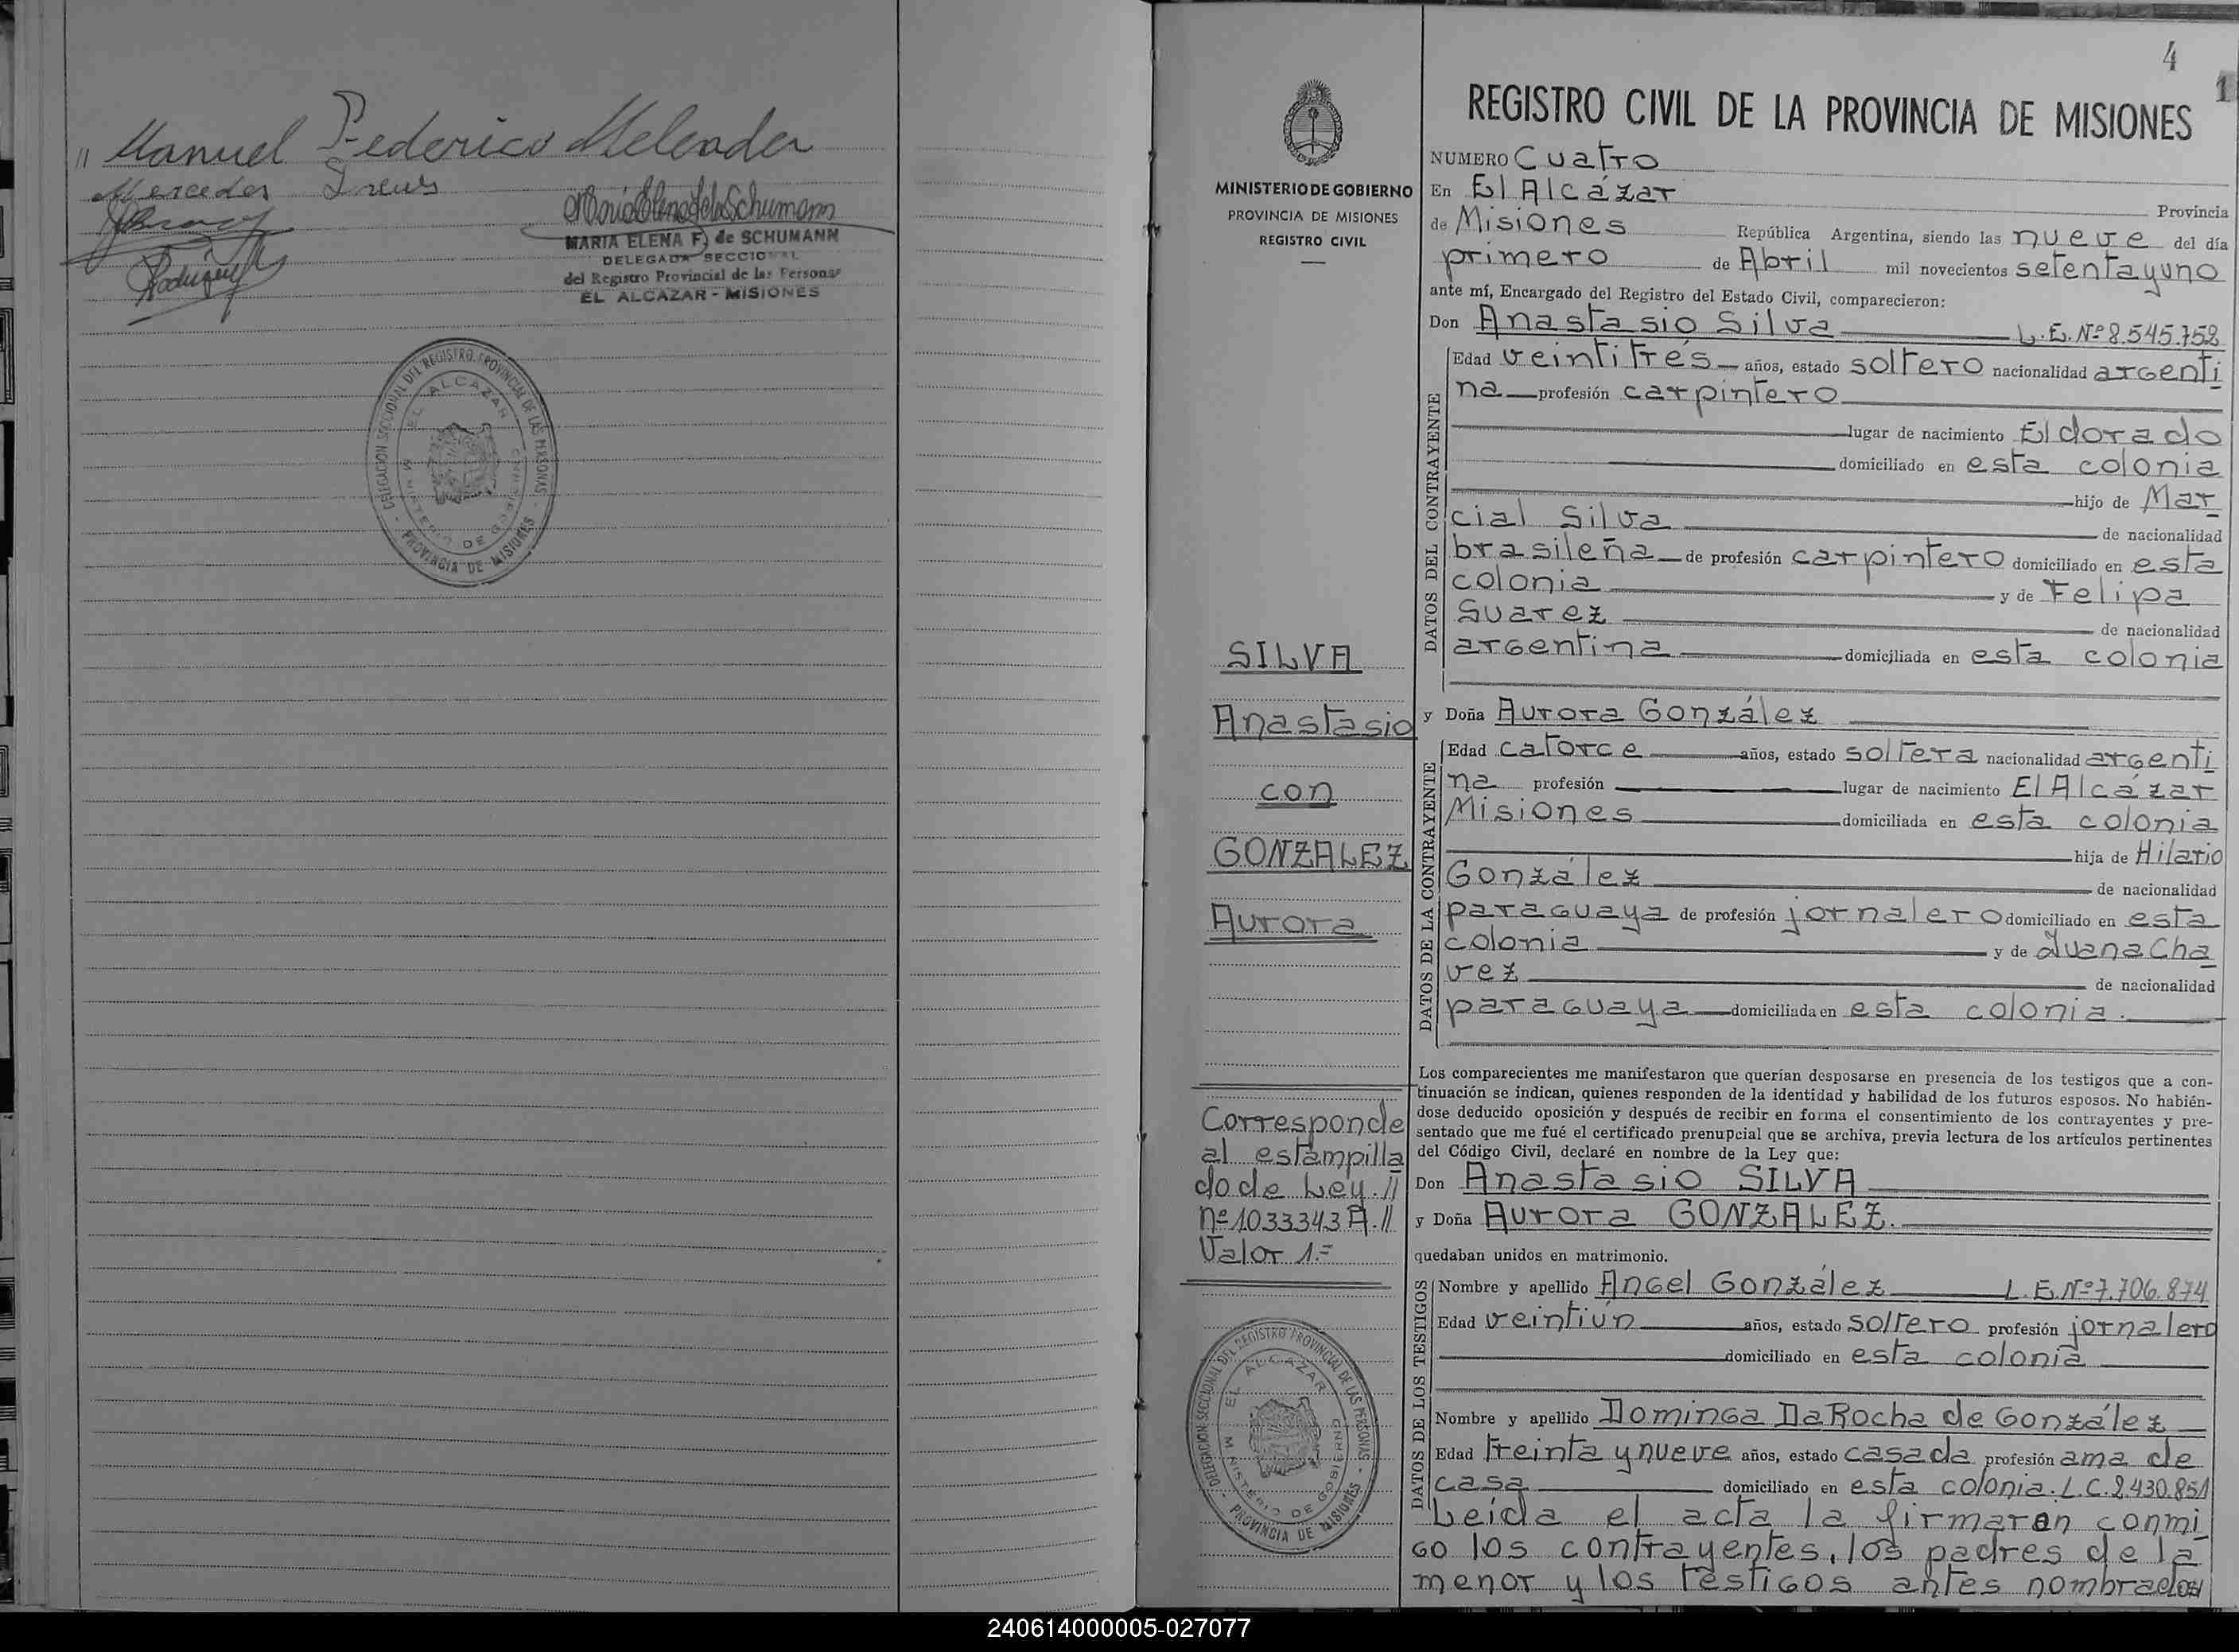 " Manuel Federico Melender
Mercedes Ireus
Rodriguez
MARIA ELENA F. de SCHUMANN
DELEGADA SECCIONAL
del Registro Provincial de las Personas
EL ALCAZAR - MISIONES
DELEGACION SECCIONAL DEL REGISTRO PROVINCIAL DE LAS PERSONAS
EL ALCAZAR
MINISTERIO DE GOBIERNO
PROVINCIA DE MISIONES
4
1
MINISTERIO DE GOBIERNO
PROVINCIA DE MISIONES
REGISTRO CIVIL
SILVA
Anastasio
con
GONZALEZ
Aurora
Corresponde
al estampilla
do de Ley.//
nº 1033343 A.//
Valor 1.=
DELEGACION SECCIONAL DEL REGISTRO PROVINCIAL DE LAS PERSONAS
EL ALCAZAR
MINISTERIO DE GOBIERNO
PROVINCIA DE MISIONES
REGISTRO CIVIL DE LA PROVINCIA DE MISIONES
NUMERO Cuatro
En El Alcázar Provincia
de Misiones República Argentina, siendo las nueve del día
primero de Abril mil novecientos setenta y uno
ante mí, Encargado del Registro del Estado Civil, comparecieron:
Don Anastasio Silva L.E.Nº 8.545.752
DATOS DEL CONTRAYENTE
Edad veintitrés años, estado soltero nacionalidad argenti
na profesión carpintero
lugar de nacimiento Eldorado
domiciliado en esta colonia
hijo de Mar
cial Silva de nacionalidad
brasileña de profesión carpintero domiciliado en esta
colonia y de Felipa
Suarez de nacionalidad
argentina domiciliada en esta colonia
y Doña Aurora González
DATOS DE LA CONTRAYENTE
Edad catorce años, estado soltera nacionalidad argenti
na profesión lugar de nacimiento El Alcázar
Misiones domiciliada en esta colonia
hija de Hilario
González de nacionalidad
paraguaya de profesión jornalero domiciliado en esta
colonia y de Juana Cha
vez de nacionalidad
paraguaya domiciliada en esta colonia.
Los comparecientes me manifestaron que querían desposarse en presencia de los testigos que a con-
tinuación se indican, quienes responden de la identidad y habilidad de los futuros esposos. No habién-
dose deducido oposición y después de recibir en forma el consentimiento de los contrayentes y pre-
sentado que me fué el certificado prenupcial que se archiva, previa lectura de los artículos pertinentes
del Código Civil, declaré en nombre de la Ley que:
Don Anastasio SILVA
y Doña Aurora GONZALEZ.
quedaban unidos en matrimonio.
DATOS DE LOS TESTIGOS
Nombre y apellido Angel González L.E.Nº 7.706.874
Edad veintiún años, estado soltero profesión jornalero
domiciliado en esta colonia
Nombre y apellido Dominga Da Rocha de González
Edad treinta y nueve años, estado casada profesión ama de
casa domiciliado en esta colonia. L.C.2.430.851
Leída el acta la firmaran conmi
go los contrayentes, los padres de la
menor y los testigos antes nombrados//
240614000005-027077